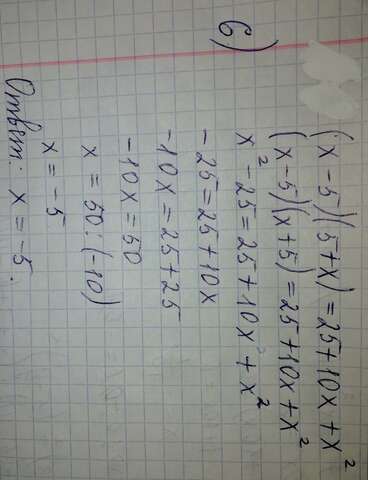 б)
(x-5)(5+x)=25+10x+x²
(x-5)(x+5)=25+10x+x²
x²-25=25+10x+x²
-25=25+10x
-10x=25+25
-10x=50
x=50:(-10)
x=-5
Ответ: x=-5.